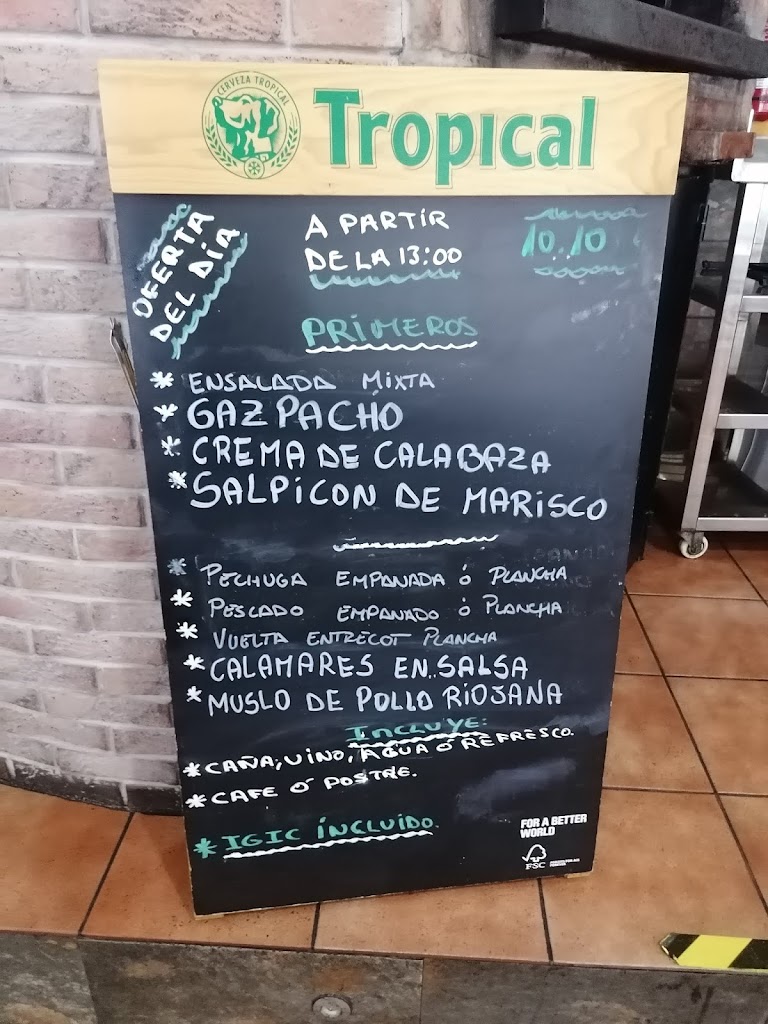 CERVEZA TROPICAL
Tropical
OFERTA
DEL DÍA
A PARTIR
DE LA 13:00
10.10
PRIMEROS
* ENSALADA MIXTA
* GAZPACHO
* CREMA DE CALABAZA
* SALPICON DE MARISCO
* PECHUGA EMPANADA Ó PLANCHA
* PESCADO EMPANADO Ó PLANCHA
* VUELTA ENTRECOT PLANCHA
* CALAMARES EN SALSA
* MUSLO DE POLLO RIOJANA
INCLUYE:
* CAÑA, VINO, AGUA Ó REFRESCO.
* CAFE Ó POSTRE.
* IGIC INCLUIDO.
FOR A BETTER
WORLD
FSC